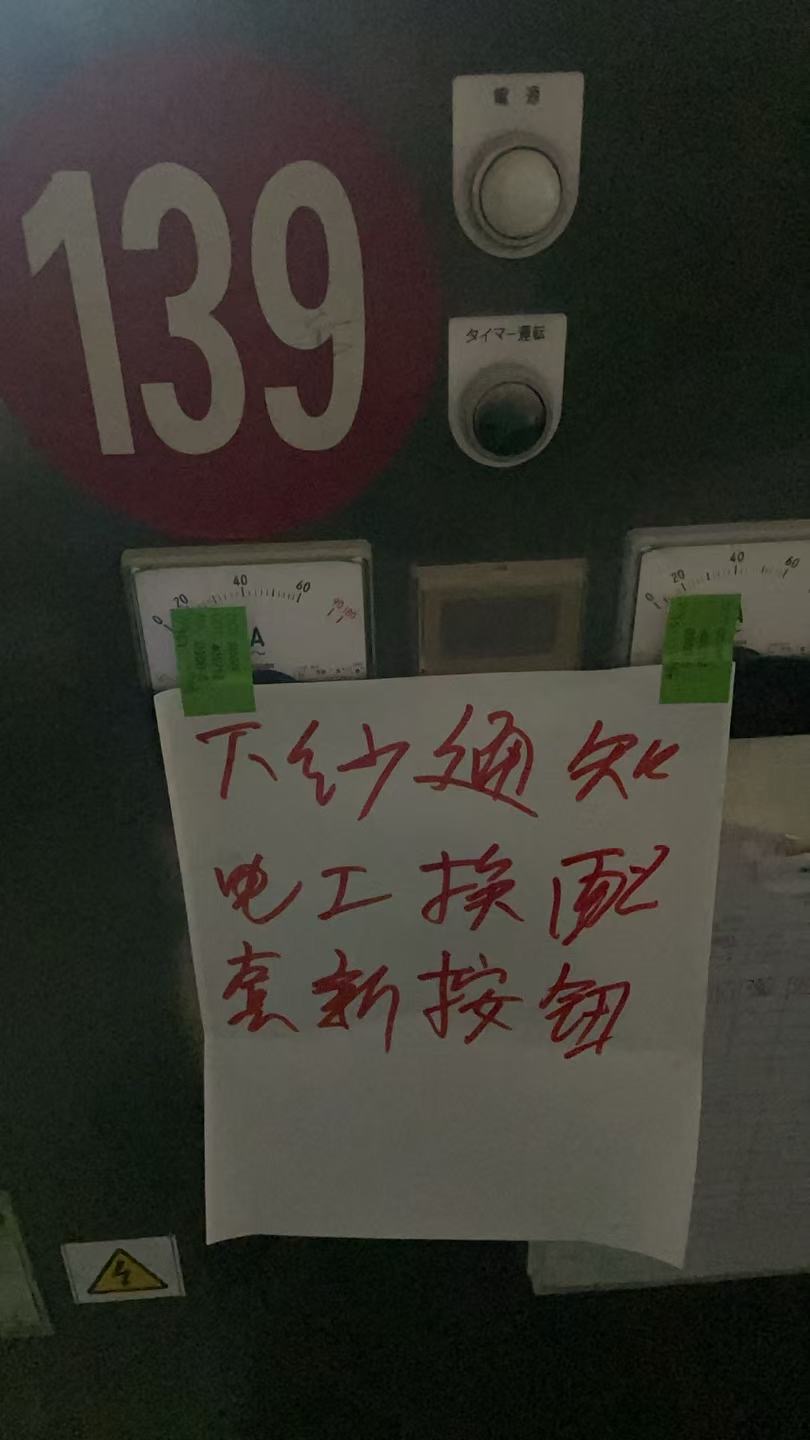 139
電源
タイマー運転
0 20 40 60 90 100
A
0 20 40 60
下纱通知
电工换配
套新按钮